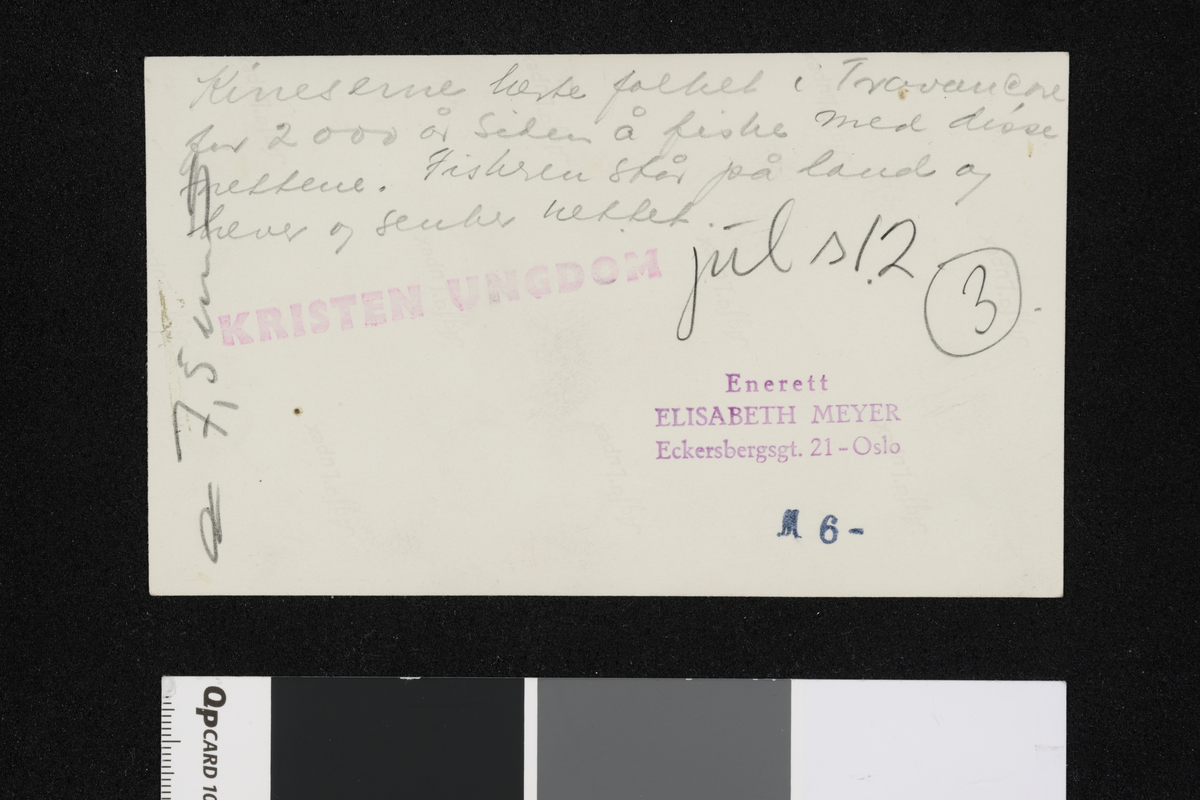 Kineserne lærte folket i Travancore
for 2000 år siden å fiske med disse
nettene. Fiskeren står på land og
hever og senker nettet.
jul s 12
3
KRISTEN UNGDOM
7,5 cm
Enerett
ELISABETH MEYER
Eckersbergsgt. 21 - Oslo
M 6-
QpCARD 10